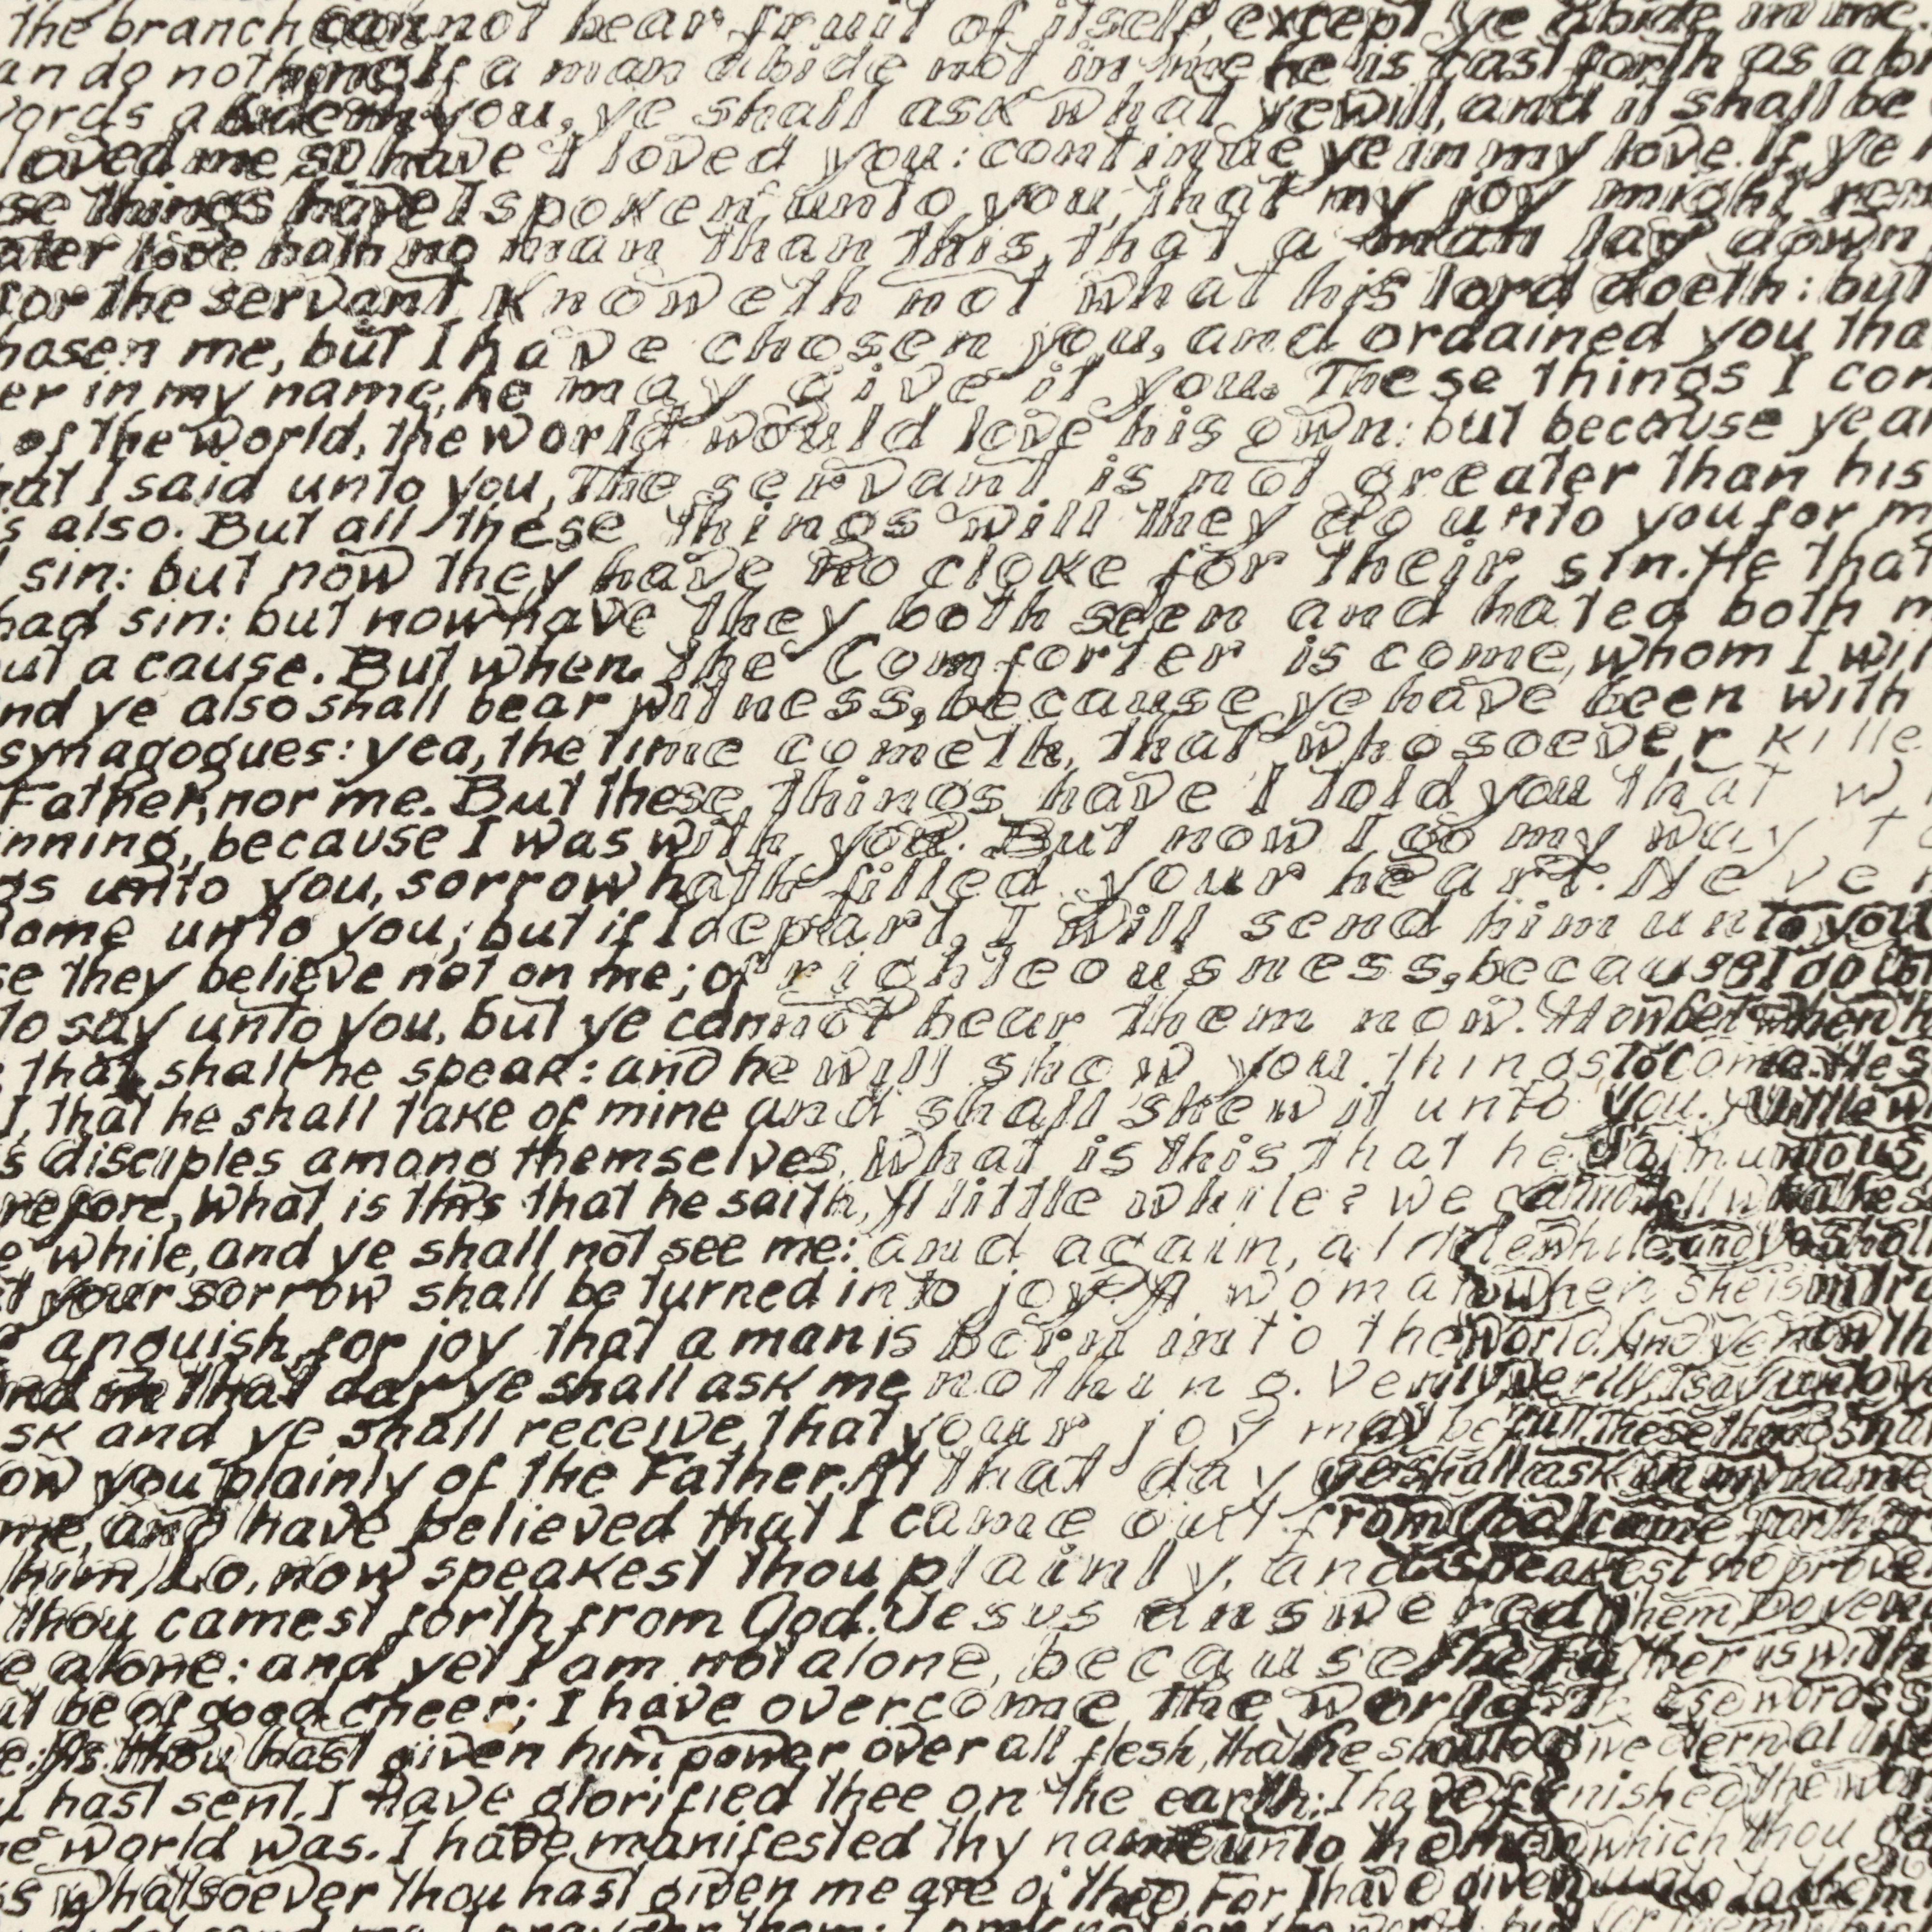 the branch cannot bear fruit of itself, except ye abide in me.
an do nothing. If a man abide not in me he is cast forth as a br
ords abide in you, ye shall ask what ye will, and it shall be
loved me, so have I loved you: continue ye in my love. If ye
se things have I spoken unto you, that my joy might rem
ater love hath no man than this, that a man lay down
for the servant knoweth not what his lord doeth: but
hosen me, but I have chosen you, and ordained you tha
er in my name, he may give it you. These things I com
of the world, the world would love his own: but because ye ar
hat I said unto you, The servant is not greater than his
s also. But all these things will they do unto you for m
sin: but now they have no cloke for their sin. He that
had sin: but now have they both seen and hated both m
ut a cause. But when the Comforter is come, whom I wil
nd ye also shall bear witness, because ye have been with
synagogues: yea, the time cometh, that whosoever kille
Father, nor me. But these things have I told you that w
inning, because I was with you. But now I go my way t
gs unto you, sorrow hath filled your heart. Never
come unto you; but if I depart, I will send him unto you
se they believe not on me; of righteousness, because I go to
to say unto you, but ye cannot bear them now. Howbeit when h
that shall he speak: and he will show you things to come. He s
I, that he shall take of mine and shall shew it unto you. A little w
s disciples among themselves, What is this that he saith unto us,
refore, What is this that he saith, A little while? we cannot tell what he s
e while, and ye shall not see me: and again, a little while, and ye shall
t your sorrow shall be turned into joy. A woman when she is in tra
anguish, for joy that a man is born into the world. And ye now th
And in that day ye shall ask me nothing. Verily, verily, I say unto y
sk and ye shall receive, that your joy may be full. These things ha
ow you plainly of the Father. At that day ye shall ask in my name
me, and have believed that I came out from God. I came forth
him, Lo, now speakest thou plainly, and speakest no prove
thou camest forth from God. Jesus answered them, Do ye
e alone: and yet I am not alone, because the Father is with
ut be of good cheer; I have overcome the world. These words s
e: As thou hast given him power over all flesh, that he should give eternal life
u hast sent. I have glorified thee on the earth: I have finished the wor
he world was. I have manifested thy name unto the men which thou ga
s whatsoever thou hast given me are of thee. For I have given unto them